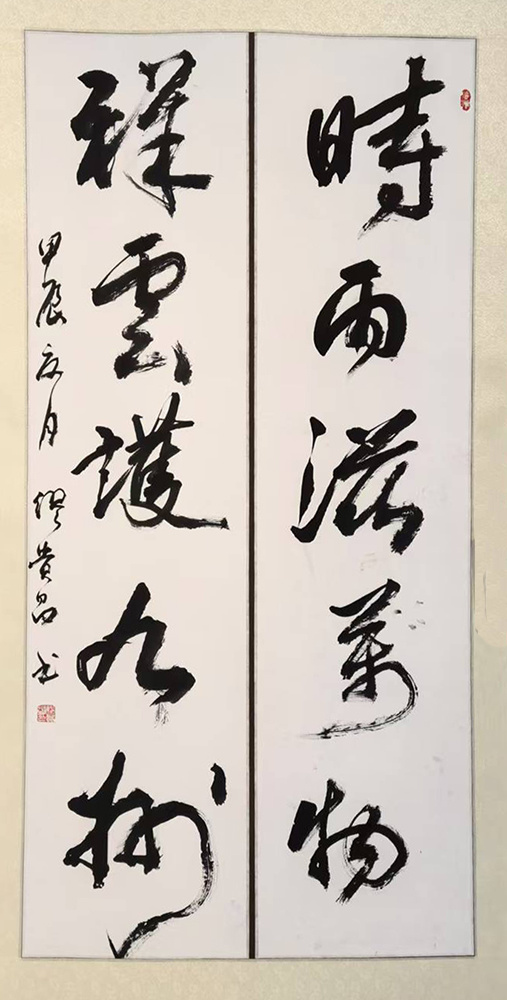 時雨滋萬物
祥雲護九州
甲辰夏月 繆貴昌书